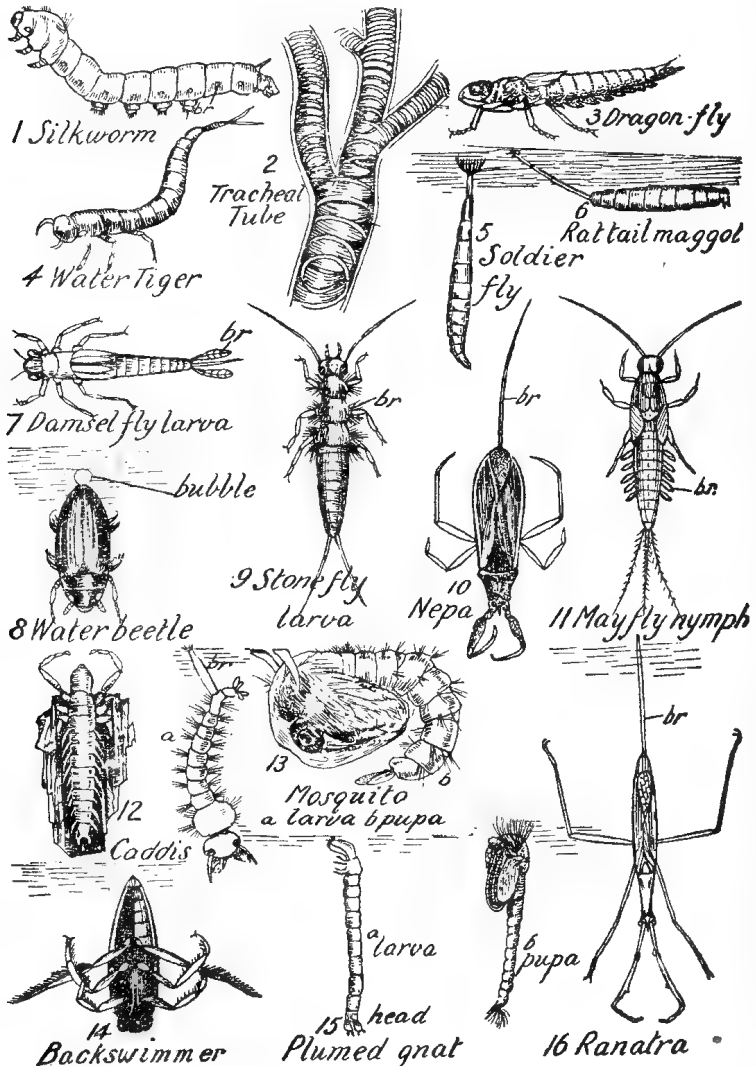 br
1 Silkworm
2
Tracheal
Tube
3 Dragon-fly
4 Water Tiger
5
Soldier
fly
6
Rat tail maggot
br
7 Damsel fly larva
bubble
8 Water beetle
br
9 Stone fly
larva
br
10
Nepa
br.
11 May fly nymph
12
Caddis
br
a
13
b
Mosquito
a larva b pupa
br
14
Backswimmer
a
larva
15
head
Plumed gnat
b
pupa
16 Ranatra